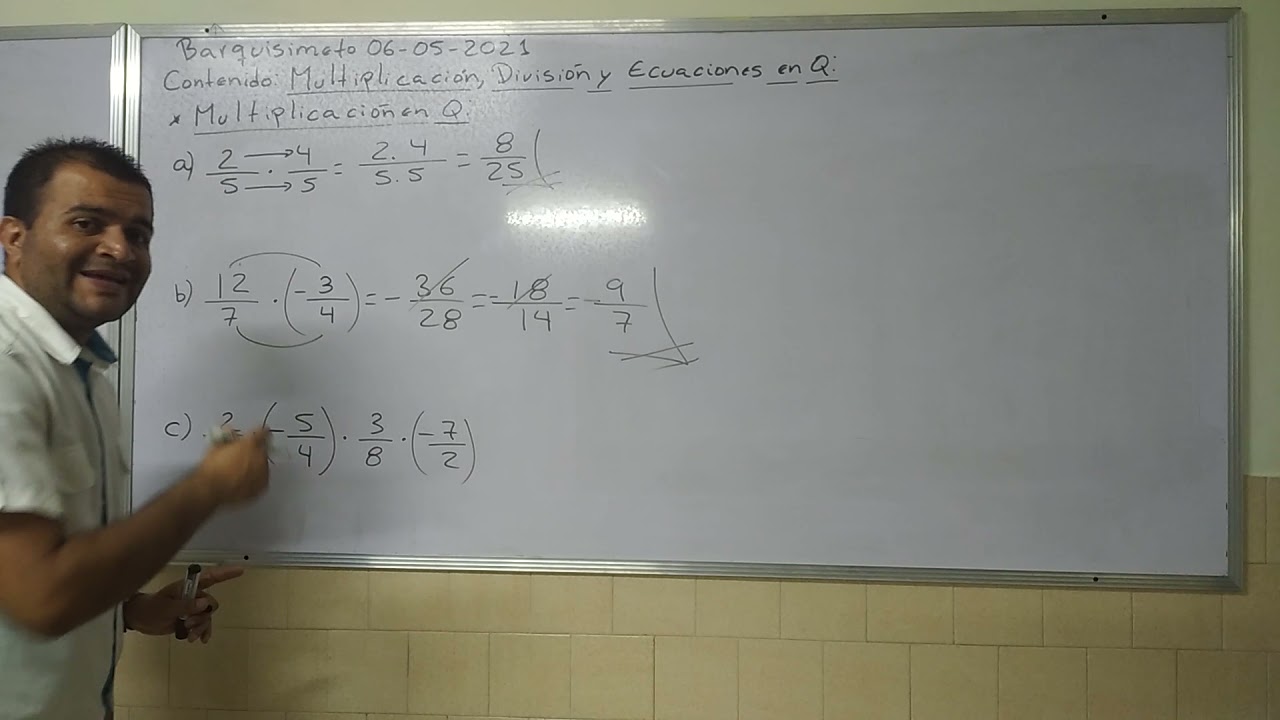 Barquisimeto 06-05-2021
Contenido: Multiplicación, División y Ecuaciones en Q:
* Multiplicación en Q:
a) 2/5 · 4/5 = 2.4/5.5 = 8/25
b) 12/7 · (-3/4) = -36/28 = -18/14 = -9/7
c) (-5/4) · 3/8 · (-7/2)